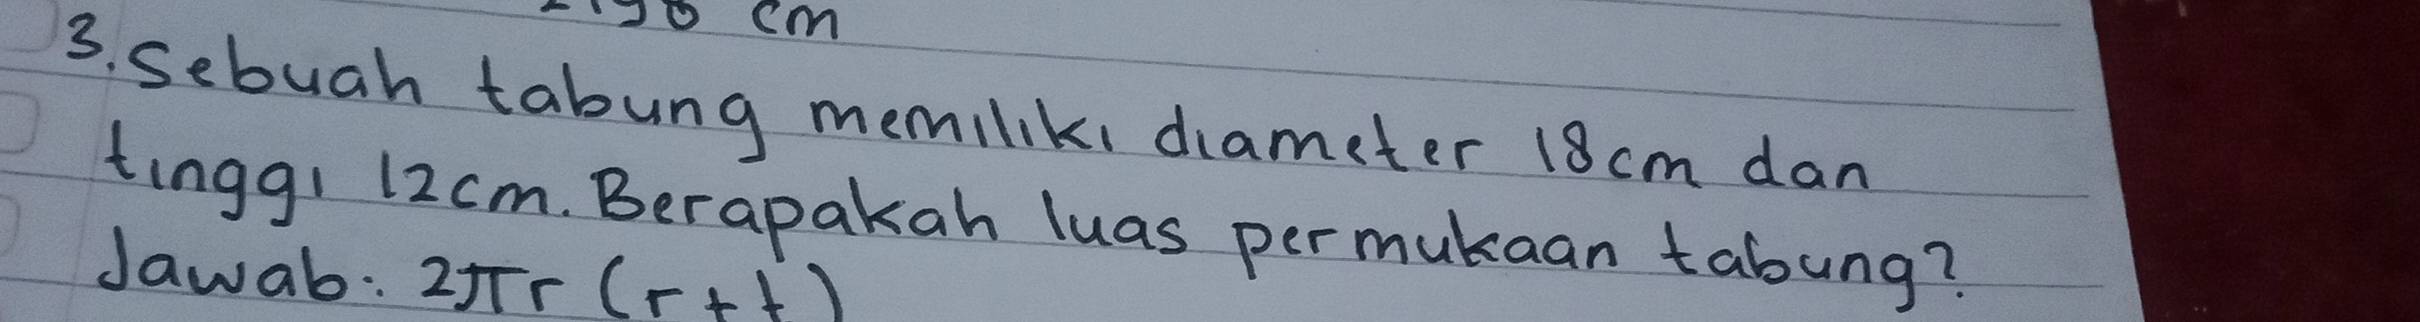 cm
3. Sebuah tabung memiliki diameter 18cm dan
tinggi 12cm. Berapakah luas permukaan tabung?
Jawab: 2πr (r+t)